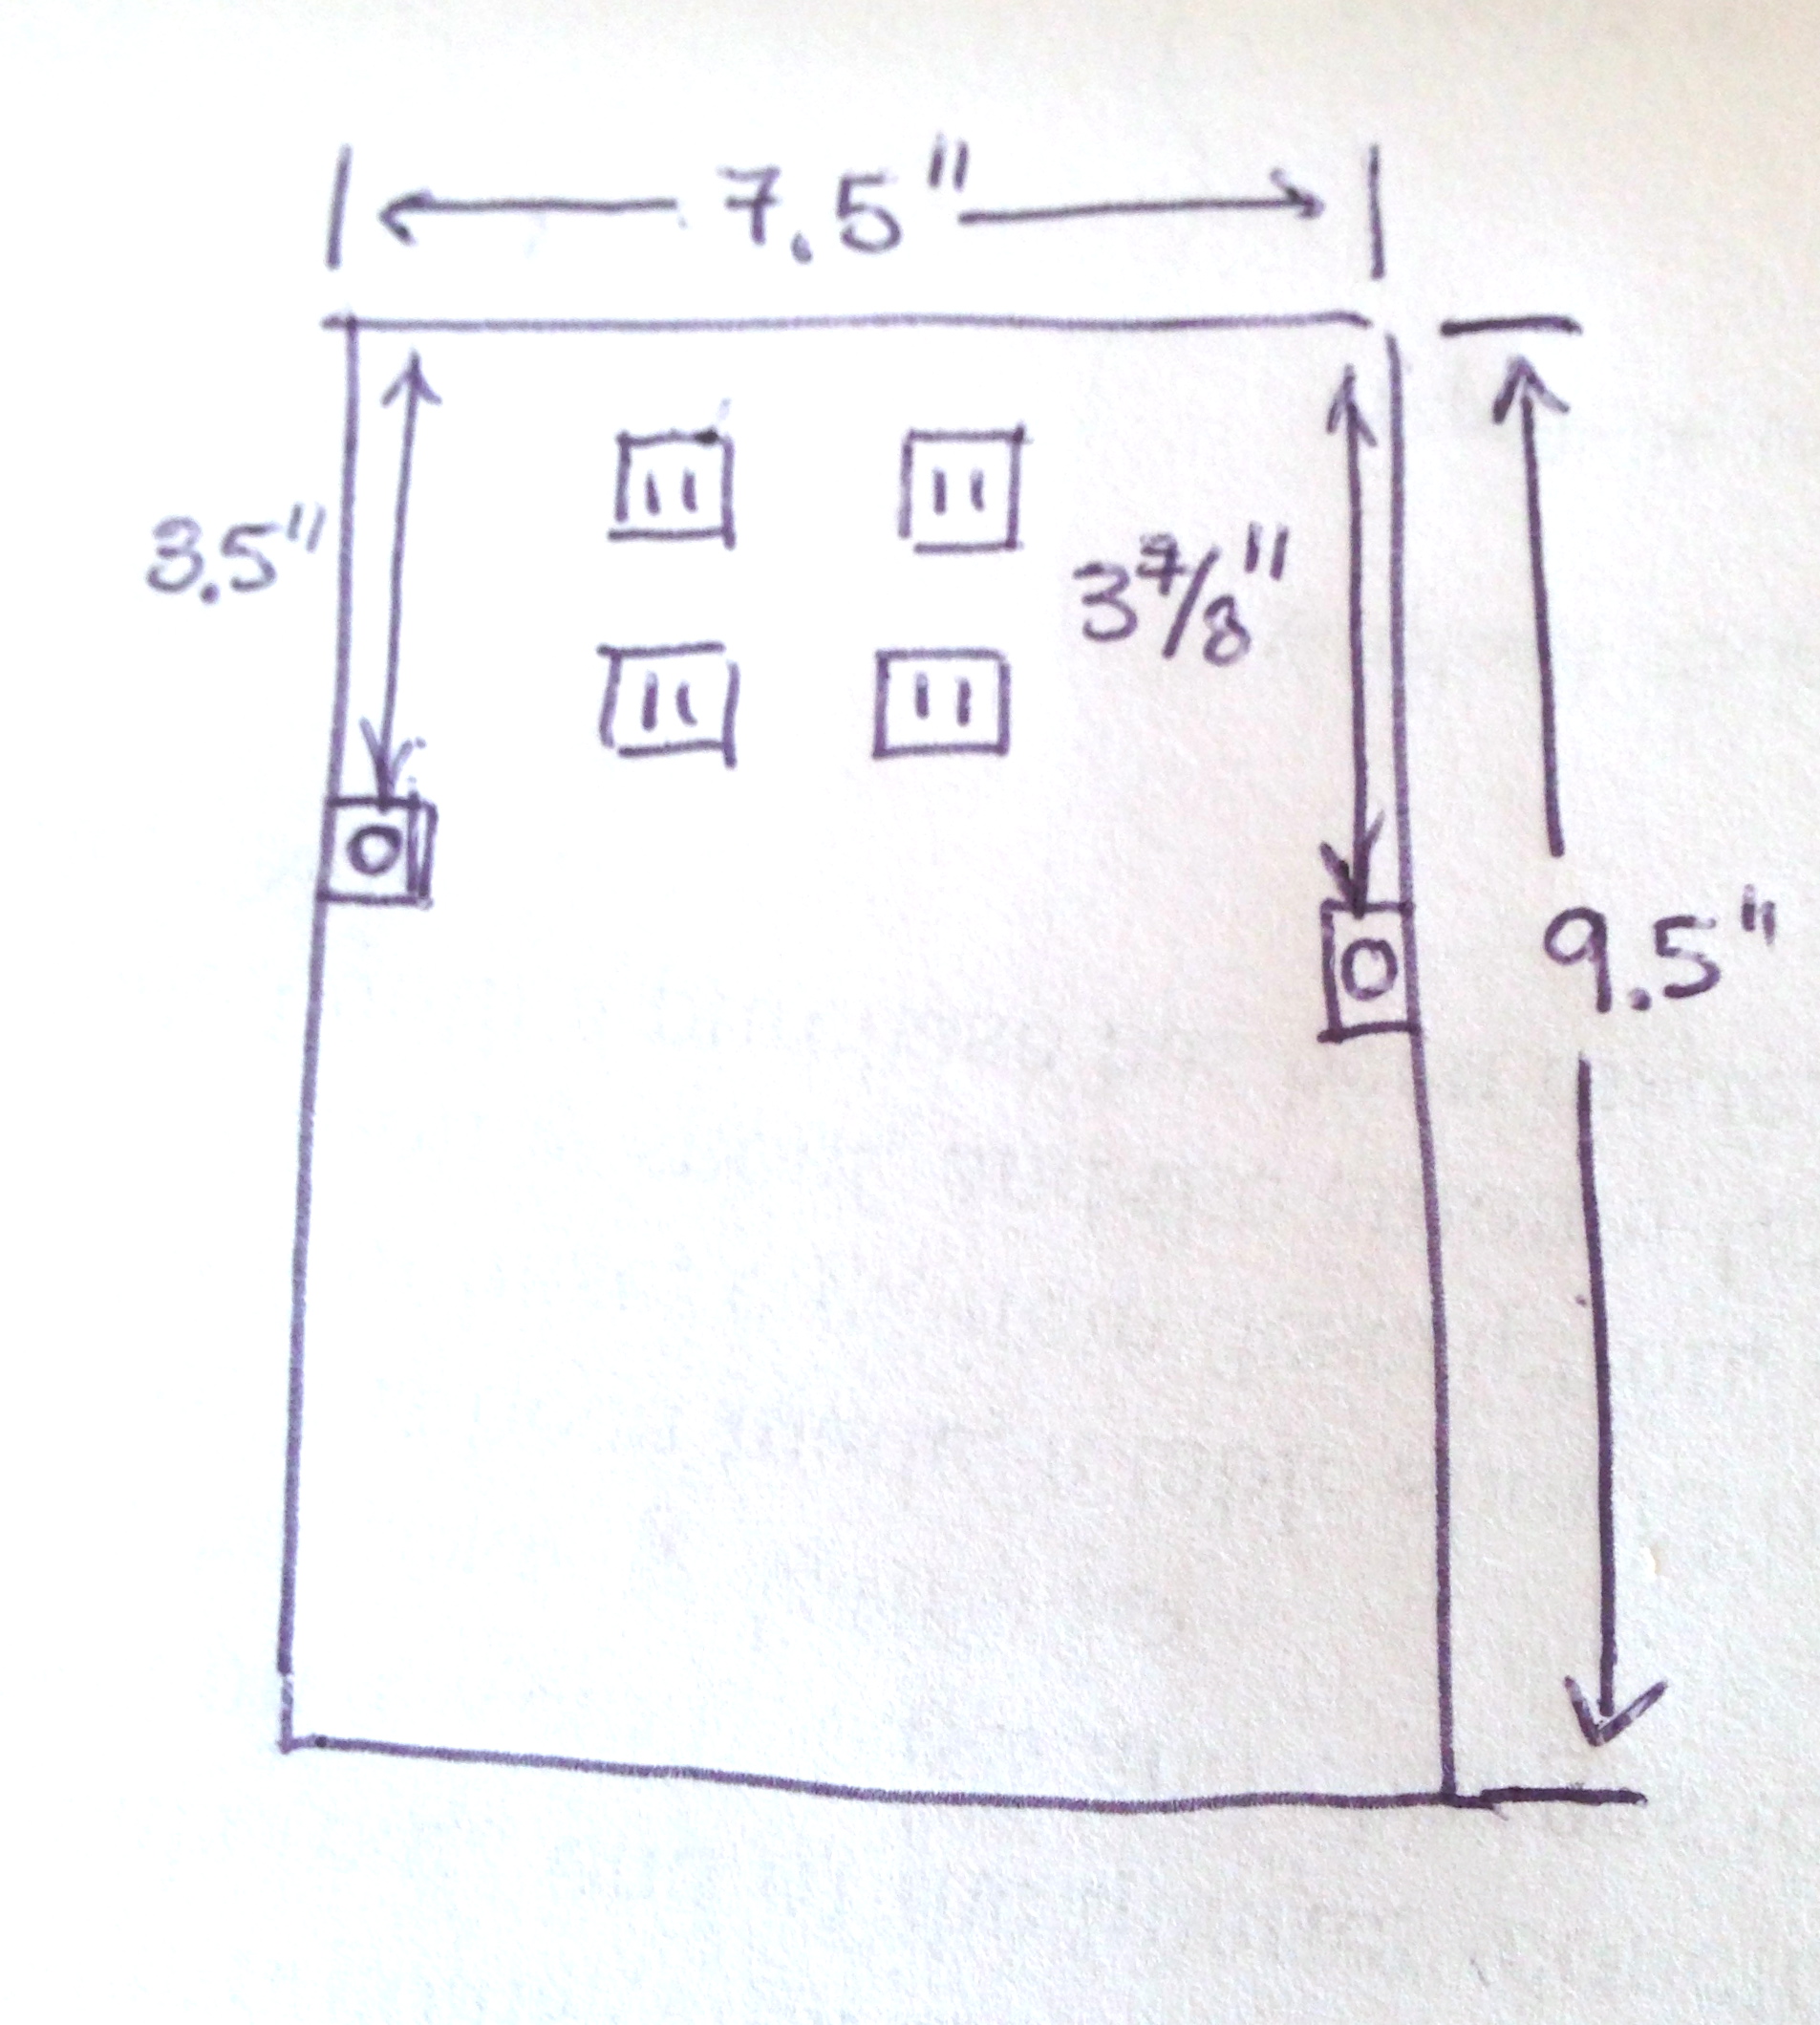 7.5"
3.5"
3 7/8"
9.5"